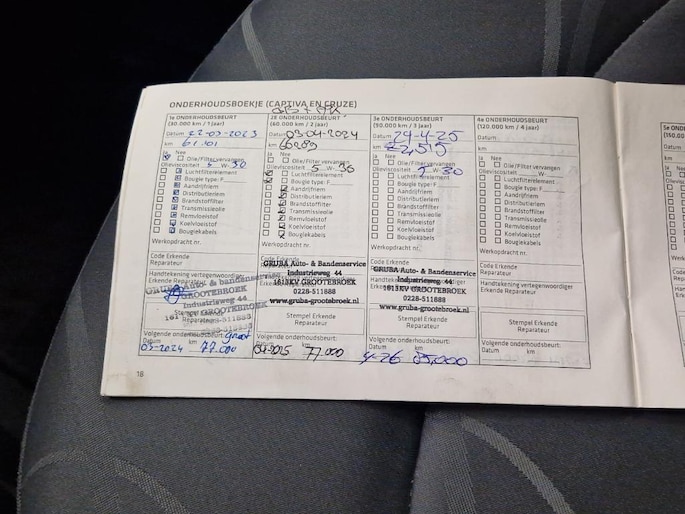 ONDERHOUDSBOEKJE (CAPTIVA EN CRUZE)
1e ONDERHOUDSBEURT
(30.000 km / 1 jaar)
Datum 22-03-2023
km 61.101
Ja Nee
Olie/Filter vervangen
Olieviscositeit 5 W- 30
Luchtfilterelement
Bougie type: F
Aandrijfriem
Distributieriem
Brandstoffilter
Transmissieolie
Remvloeistof
Koelvloeistof
Bougiekabels
Werkopdracht nr.
Code Erkende
Reparateur
Handtekening vertegenwoordiger
Erkende Reparateur
GRUBA Auto- & Bandenservice
Industrieweg 44
GROOTEBROEK
Stempel Erkende
Reparateur
Volgende onderhoudsbeurt: Groot
Datum km
03-2024 77.000
2e ONDERHOUDSBEURT
(60.000 km / 2 jaar)
Datum 03-04-2024
km 66289
Ja Nee
Olie/Filter vervangen
Olieviscositeit 5 W- 30
Luchtfilterelement
Bougie type: F
Aandrijfriem
Distributieriem
Brandstoffilter
Transmissieolie
Remvloeistof
Koelvloeistof
Bougiekabels
Werkopdracht nr.
GRUBA Auto- & Bandenservice
Industrieweg 44
1613KV GROOTEBROEK
0228-511888
www.gruba-grootebroek.nl
Stempel Erkende
Reparateur
Volgende onderhoudsbeurt:
Datum km
04-2025 77.000
3e ONDERHOUDSBEURT
(90.000 km / 3 jaar)
Datum 29-4-25
km 72,515
Ja Nee
Olie/Filter vervangen
Olieviscositeit 5 W- 30
Luchtfilterelement
Bougie type: F
Aandrijfriem
Distributieriem
Brandstoffilter
Transmissieolie
Remvloeistof
Koelvloeistof
Bougiekabels
Werkopdracht nr.
Code Erkende
GRUBA Auto- & Bandenservice
Industrieweg 44
1613KV GROOTEBROEK
0228-511888
www.gruba-grootebroek.nl
Stempel Erkende
Reparateur
Volgende onderhoudsbeurt:
Datum km
4-26 85,000
4e ONDERHOUDSBEURT
(120.000 km / 4 jaar)
Datum
km
Ja Nee
Olie/Filter vervangen
Olieviscositeit W-
Luchtfilterelement
Bougie type: F
Aandrijfriem
Distributieriem
Brandstoffilter
Transmissieolie
Remvloeistof
Koelvloeistof
Bougiekabels
Werkopdracht nr.
Code Erkende
Reparateur
Handtekening vertegenwoordiger
Erkende Reparateur
Stempel Erkende
Reparateur
Volgende onderhoudsbeurt:
Datum km
18